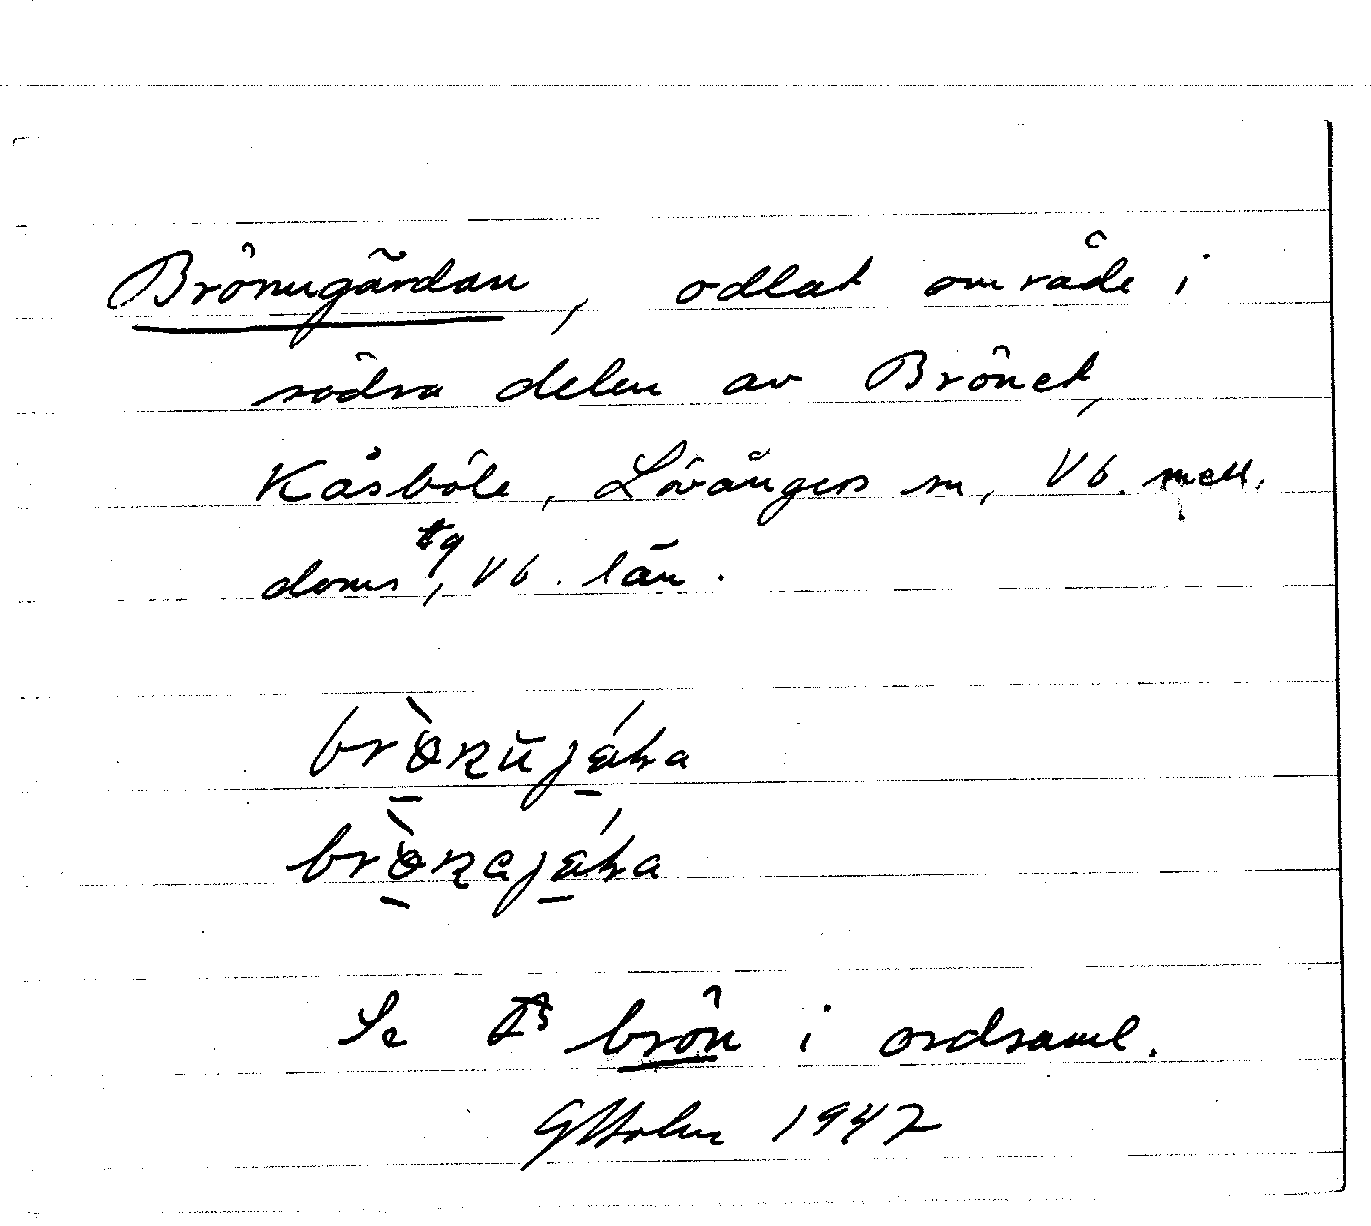 Brönugärdan, odlat område i
södra delen av Brönet,
Kåsböle, Lövångers sn, Vb. mell.
doms tg, Vb. län.
brö̀nŭjǽka
brö̀nɐjǽka
Se brön i ordsaml.
GHolm 1947